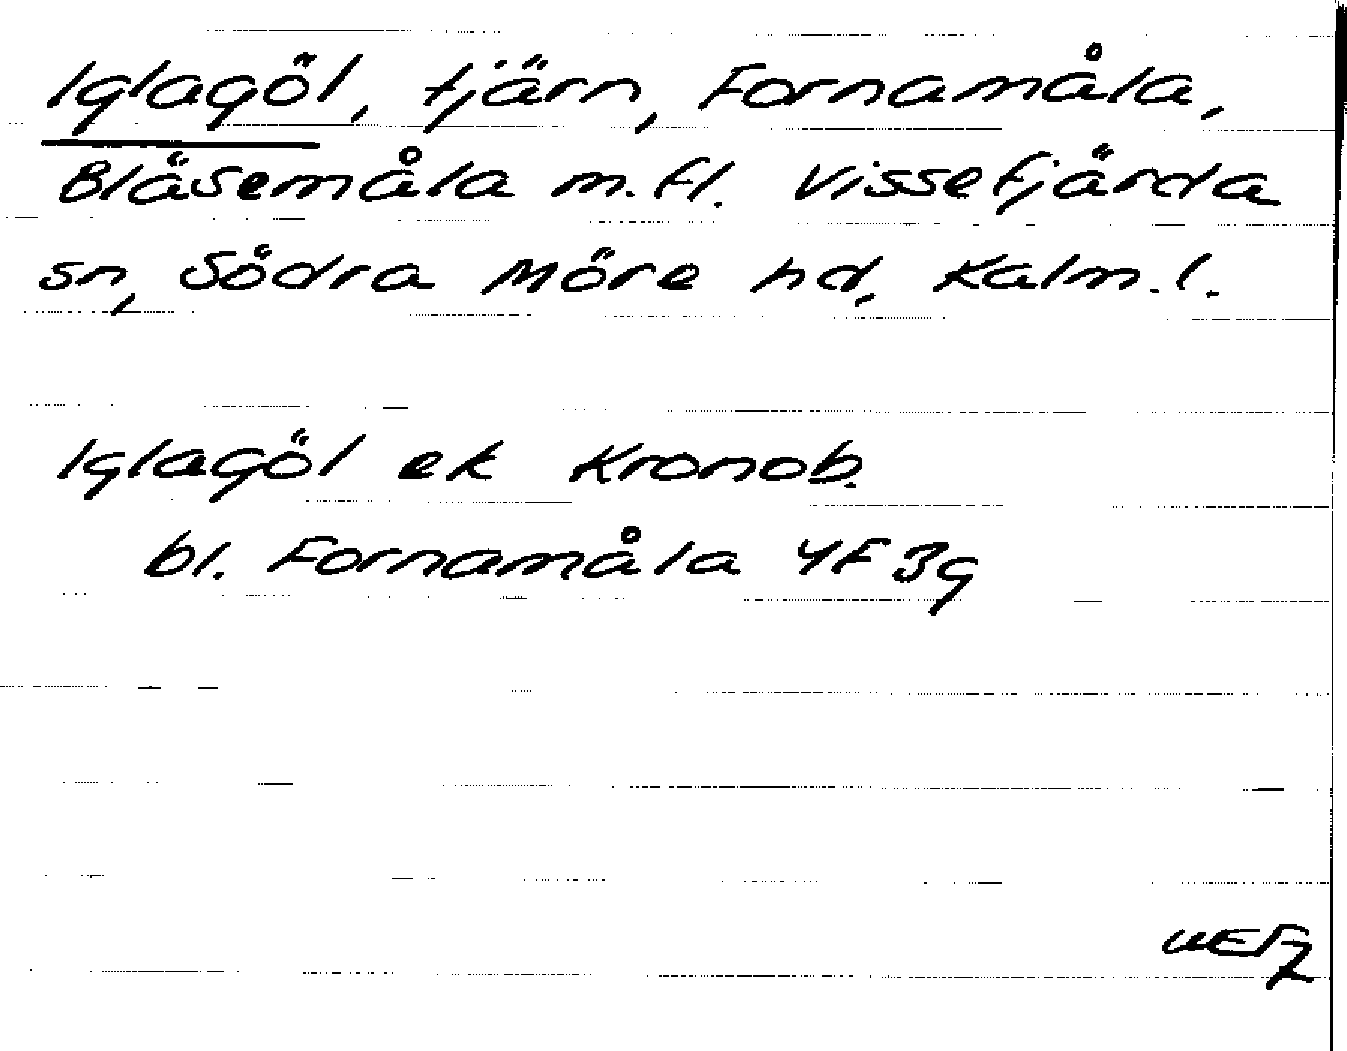 Iglagöl, tjärn, Fornamåla,
Bläsemåla m.fl. Vissefjärda
sn, Södra Möre hd, Kalm.l.
Iglagöl ek Kronob.
bl. Fornamåla 4F 3g